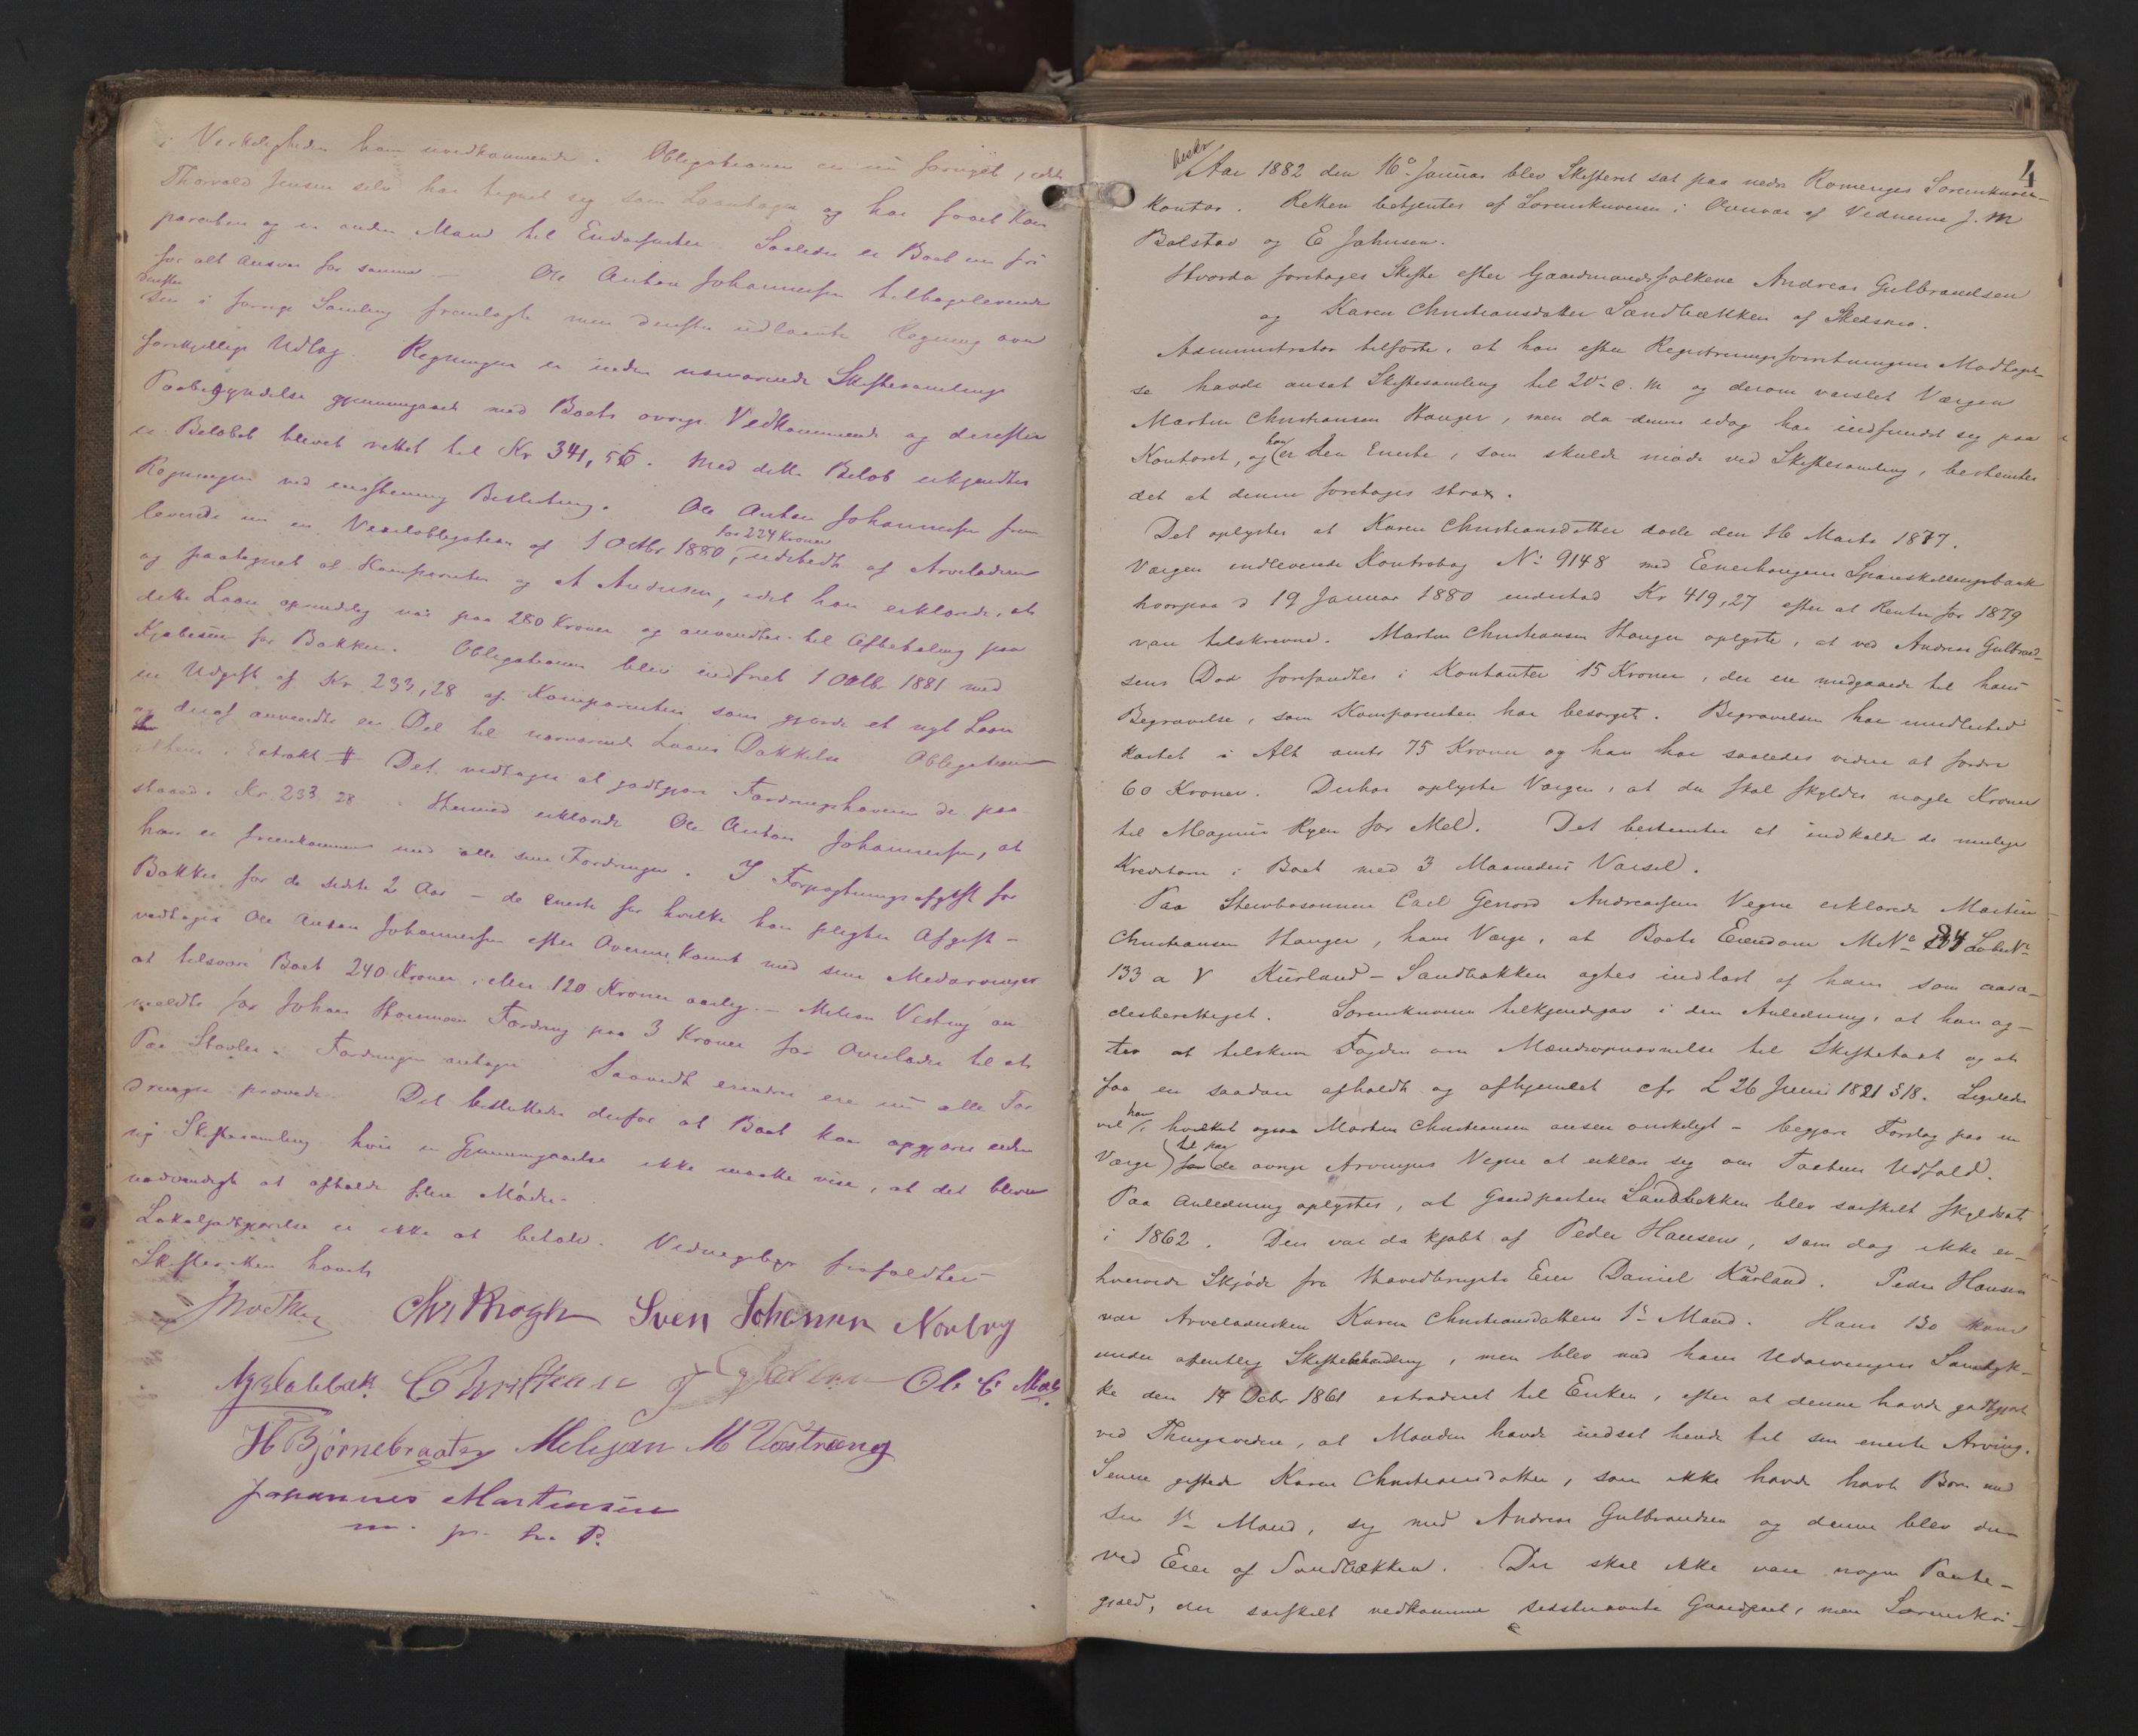 i Virkeligheden ham uvedkommende. Obligationen er nu fornyet, idet
Thorvald Jensen selv har tegnet seg som Laantager og har faaet Kom
parenten og en anden Mand til Endossenter. Saaledes er Boet nu fri
for alt Ansvar for samme — Ole Anton Johannessen tilbageleverede
derefter
den i forrige Samling fremlagte men derefter udlaante Regning over
forskjellige Udlæg. Regningen er inden nærværende Skiftesamlings
Paabegyndelse gjennemgaaet med Boets øvrige Vedkommende og derefter
er Beløbet blevet rettet til Kr 341,56. Med dette Beløb erkjendtes
Regningen ved enstemmig Beslutning. Ole Anton Johannessen frem
for 224 Kroner
leverede nu en Vexelobligation af 1 Octbr 1880, udstedt af Arveladeren
og paategnet af Komparenten og A Andersen, idet han erklærede, at
dette Laan oprindelig var paa 280 Kroner og anvendtes til Afbetaling paa
Kjøbesum for Bakken. Obligationen blev indfriet 1 Octbr 1881 med
en Udgift af Kr 233,28 af Komparenten som gjorde et nyt Laan
og deraf anvendte en Del til nærværende Laans Dækkelse Obligationen
Extrakt # Det vedtages at godtgjøre Fordringshaveren de paa
staaede Kr. 233 28. Hermed erklærede Ole Anton Johannessen, at
han er fremkommen med alle sine Fordringer. I Forpagtningsafgift for
Bakken for de sidste 2 Aar – de eneste for hvilke han pligter Afgift –
vedtages Ole Anton Johannessen efter Overenskomst med sine Medarvinger
at tilsvare Boet 240 Kroner, eller 120 Kroner aarlig. – Melian Vestreng an
meldte for Johan Fordring paa 3 Kroner for Overlæder til et
Par Støvler. Fordringen antages Saavidt erindres ere nu alle For
dringer prøvede. Det besluttedes derfor at Boet kan opgjøres uden
ny Skiftesamling hvis en Gjennemgaaelse ikke maatte vise, at det bliver
nødvendigt at afholde flere Møder.
Lokalgodtgjørelse er ikke at betale. Vidnegebyr frafaldtes
Skifteretten hævet
Chr Krogh Sven Johansen Norbry
Christian Ole C. Moe
H Bjørnebraaten Melijan M Væstræng
Johannes Martinsen
m. p. h. P.
4
beskr
Aar 1882 den 16de Januar blev Skifteret sat paa nedre Romeriges Sorenskriver-
kontor. Retten betjentes af Sorenskriveren i Overvær af Vidnerne J. M
Bølstad og E Johnsen.
Hvorda foretages Skifte efter Gaardmandsfolkene Andreas Gulbrandsen
og Karen Christiansdatter Sandbækken af Skedsmo.
Administrator tilførte, at han efter Registreringsforretningens Modtagel-
se havde ansat Skiftesamling til 20de c. M og derom varslet Værgen
Martin Christiansen Hauger, men da denne idag har indfundet seg paa
Kontoret, og han er den Eneste, som skulde møde ved Skiftesamling, bestemtes
det at denne foretages strax.
Det oplystes at Karen Christiansdatter døde den 16 Marts 1877.
Værgen indleverede Kontrabog No 9148 med Eenerhougens Spareskillingsbank
hvorpaa d 19 Januar 1880 indestod Kr 419,27 efter at Renter for 1879
vare tilskrevne. Martin Christiansen Hauger oplyste, at ved Andreas Gulbrand-
sens Død forefandtes i Kontanter 15 Kroner, der ere medgaaede til hans
Begravelse, som Komparenten har besørget. Begravelsen har imidlertid
kostet i Alt omtr 75 Kroner og han har saaledes videre at fordre
60 Kroner. Derhos oplyste Værgen, at der skal skyldes nogle Kroner
til Magnus Ryen for Mel. Det bestemtes at indkalde de mulige
Kreditorer i Boet med 3 Maaneders Varsel.
Paa Stervbosønnen Carl Genord Andreassens Vegne erklærede Martin
Christiansen Hauger, hans Værge, at Boets Eiendom MNo 84 LøbeNo
133 a V Kurland-Sandbækken agtes indløst af ham som aasæ-
desberettiget. Sorenskriveren tilkjendegav i den Anledning, at han ag-
ter at tilskrive Fogden om Mændsopnævnelse til Skiftetaxt og at
faa en saadan afholdt og afhjemlet cfr L 26 Juni 1821 §18. Ligeledes
vil han, hvilket ogsaa Martin Christiansen ansees ønskeligt – begjære Forslag paa en
Værge til paa de øvrige Arvingers Vegne at erklære seg om Taxtens Udfald.
Paa Anledning oplystes, at Gaardparten Sandbekken blev særskilt skyldsat
i 1862. Den var da kjøbt af Peder Hansen, som dog ikke er-
hvervede Skjøde fra Hovedbrugets Eier Daniel Kurland. Peder Hansen
var Arveladersken Karen Christiansdatters 1ste Mand. Hans Bo kom
under offentlig Skiftebehandling, men blev med hans Udarvingers Samtyk-
ke den 14 Decbr 1861 extraderet til Enken, efter at denne havde godtgjort
ved Thingsvidne, at Manden havde indsat hende til sin eneste Arving.
Senere giftede Karen Christiansdatter, som ikke havde havt Børn med
sin 1ste Mand, seg med Andreas Gulbrandsen og denne blev der-
ved Eier af Sandbækken. Der skal ikke være nogen Pante-
gjæld, der særskilt vedkommer sidstnævnte Gaardpart, men Sorenskri-